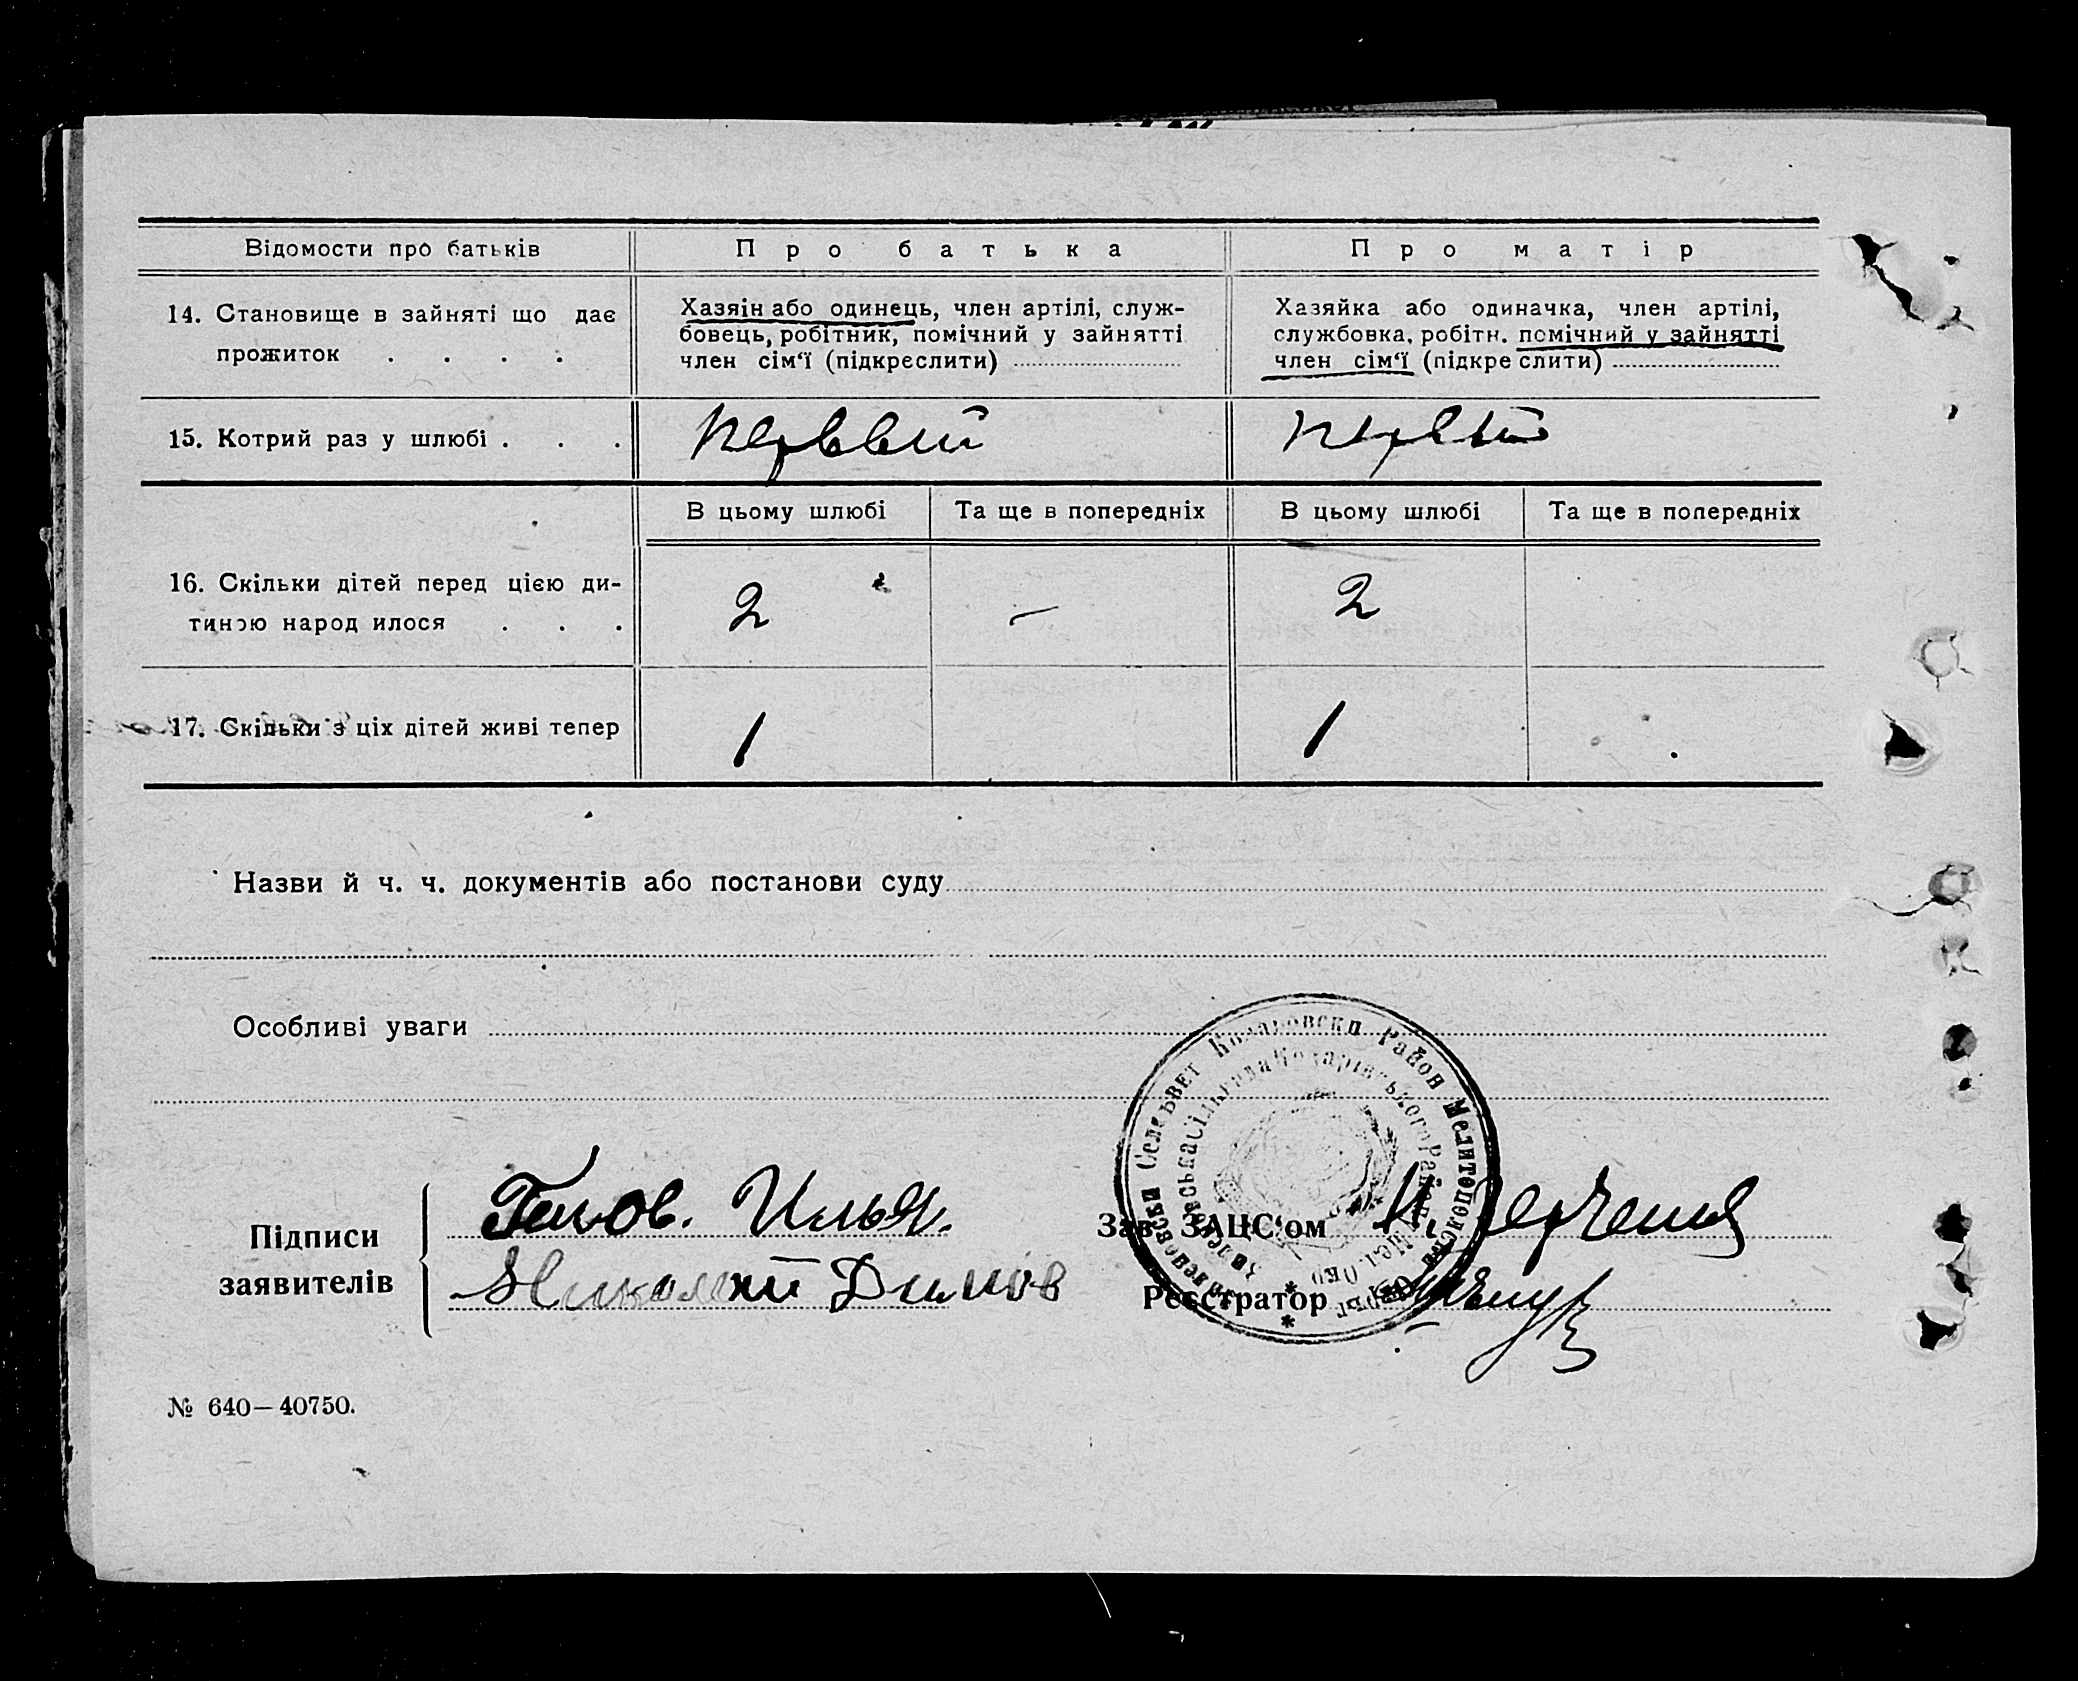 Відомости про батьків
Про батька
Про матір
14. Становище в зайняті що дає
прожиток . . . .
Хазяін або одинець, член артілі, служ-
бовець, робітник, помічний у зайнятті
член сім‘ї (підкреслити)
Хазяйка або одиначка, член артілі,
службовка, робітн. помічний у зайнятті
член сім‘ї (підкреслити)
15. Котрий раз у шлюбі . . .
первый
первый
В цьому шлюбі
Та ще в попередніх
В цьому шлюбі
Та ще в попередніх
16. Скільки дітей перед цією ди-
тиною народ илося . . .
2
—
2
17. Скільки з ціх дітей живі тепер
1
1
Назви й ч. ч. документів або постанови суду
Особливі уваги
Сельвет Район Мелитопольськ
Район
Підписи
заявителів
Илья.
Николай Димов
Зав. ЗАЦС‘ом
Реєстратор
№ 640—40750.